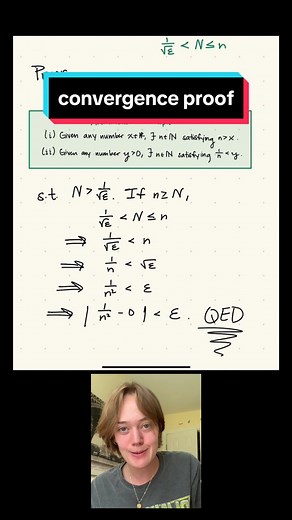 1/√ε < N ≤ n
convergence proof
(i) Given any number x∈ℝ, ∃ n∈ℕ satisfying n>x.
(ii) Given any number y>0, ∃ n∈ℕ satisfying 1/n < y.
s.t N > 1/√ε. If n ≥ N,
1/√ε < N ≤ n
⟹ 1/√ε < n
⟹ 1/n < √ε
⟹ 1/n² < ε
⟹ | 1/n² - 0 | < ε. QED